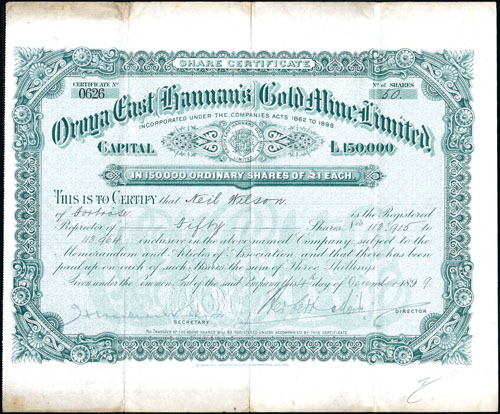 SHARE CERTIFICATE
CERTIFICATE No
0626
No of SHARES
50.
Oroya East Hannan's Gold Mine, Limited.
INCORPORATED UNDER THE COMPANIES ACTS 1862 TO 1898.
CAPITAL £150,000
IN 150,000 ORDINARY SHARES OF £1 EACH.
THIS IS TO CERTIFY that Neil Wilson.
of is the Registered
Proprietor of Fifty Shares, Nos 112,915 to
112,964 inclusive in the above named Company subject to the
Memorandum and Articles of Association and that there has been
paid up on each of such Shares the sum of Three Shillings
Given under the Common Seal of the said Company this day of December 1899
DIRECTOR
SECRETARY
No TRANSFER OF THE ABOVE SHARES WILL BE REGISTERED UNLESS ACCOMPANIED BY THIS CERTIFICATE.